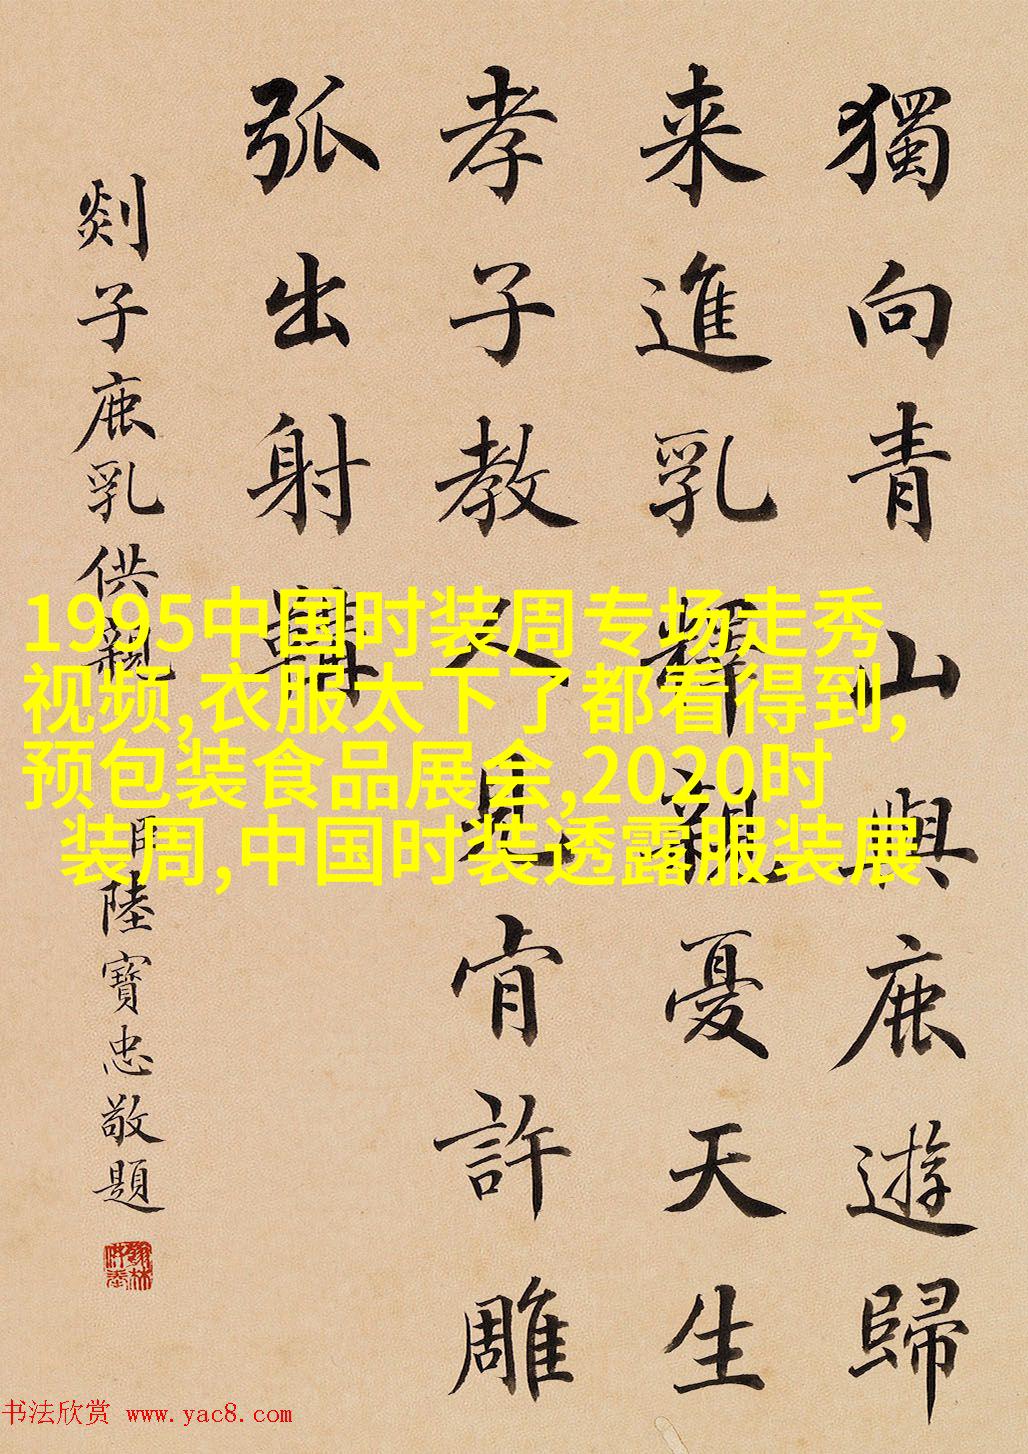 獨向青山與鹿遊歸
来進乳釋親憂天生
孝子教人見肯許雕
弧出射
剡子鹿乳供親
陸寶忠敬題
1995中国时装周专场走秀
视频,衣服太下了都看得到,
预包装食品展会,2020时
装周,中国时装透露服装展
书法欣赏 www.yac8.com